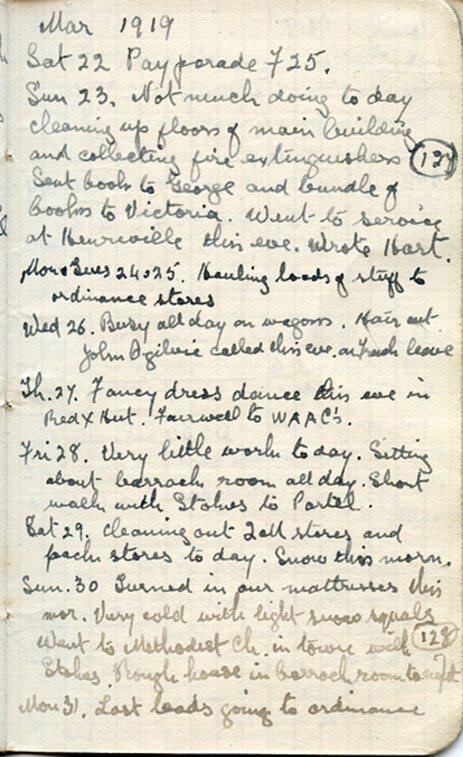 Mar 1919
Sat 22 Pay parade 725.
Sun 23. Not much doing to day
cleaning up floors of main building
and collecting fire extinguishers
127
Sent book to George and bundle of
books to Victoria. Went to service
at Henriville this eve. Wrote Hart.
Mon & Tues 24 & 25. Hauling loads of stuff to
ordinance stores
Wed 26. Busy all day on wagons. Hair cut
John Ogilvie called this eve. on leave
Th. 27. Fancy dress dance this eve in
Red X Hut. Farewell to WAAC's.
Fri 28. Very little work to day. Sitting
about barrack room all day. Short
walk with Stokes to Partel.
Sat 29. Cleaning out stores and
pack stores to day. Snow this morn.
Sun. 30 Turned in our mattresses this
mor. Very cold with light snow squals
Went to Methodist Ch. in town with
128
Stokes. Rough house in barrack room to night
Mon 31. Last loads going to ordinance